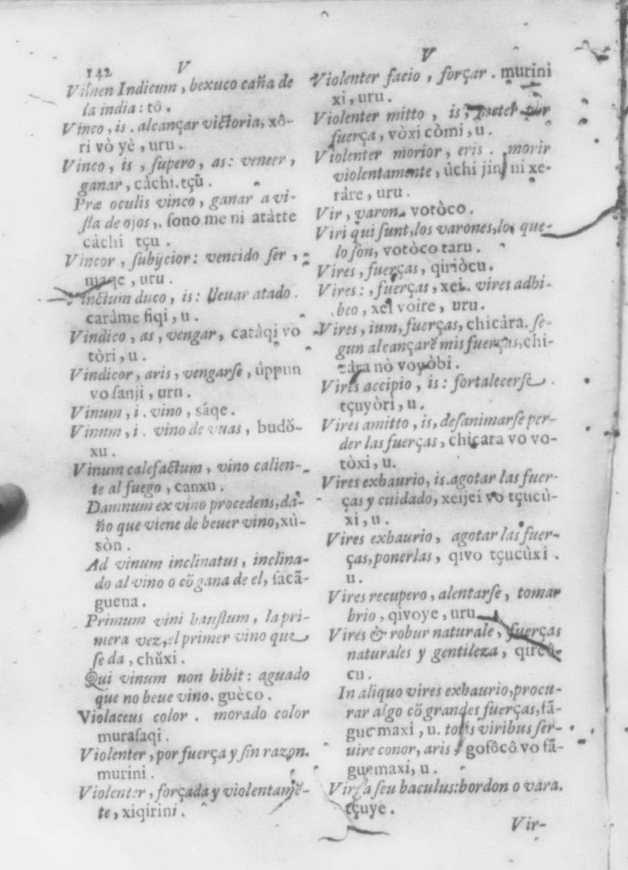 142 V
Vimen Indicum, bexuco caña de
la india: tô.
Vinco, is. alcançar victoria, xô-
ri vò yè, uru.
Vinco, is, supero, as: vencer,
ganar, càchi.tçũ.
Præ oculis vinco, ganar a vi-
sta de ojos,. sono me ni atàtte
càchi tçu.
Vincor, subijcior: vencido ser,
maqe, uru.
Vinctum duco, is: lleuar atado.
caràme fiqi, u.
Vindico, as, vengar, catàqi vo
tòri, u.
Vindicor, aris, vengarse, ûppun
vo sanji, uru.
Vinum, i. vino, sáqe.
Vinum, i. vino de vuas, budŏ-
xu.
Vinum calefactum, vino calien-
te al fuego, canxu.
Damnum ex vino procedens, dá-
ño que viene de beuer vino, xù-
sòn.
Ad vinum inclinatus, inclina-
do al vino o cõ gana de el, sacã-
guena.
Primum vini haustum, la pri-
mera vez, el primer vino que
se da, chŭxi.
Qui vinum non bibit: aguado
que no beue vino. guèco.
Violaceus color. morado color
murasaqi.
Violenter, por fuerça y sin razon.
murini.
Violenter, forçada y violentamẽ-
te, xiqirini.
V
Violenter facio, forçar. murini
xi, uru.
Violenter mitto, is, meter por
fuerça, vòxi còmi, u.
Violenter morior, eris. morir
violentamente, ûchi jini ni xe-
ràre, uru.
Vir, varon. votòco.
Viri qui sunt, los varones, los que
lo son, votòco taru.
Vires, fuerças, qiriòcu.
Vires:, fuerças, xei. vires adhi-
beo, xei voire, uru.
Vires, ium, fuerças, chicàra. se-
gun alcançarẽ mis fuerças, chi-
càra nò voyòbi.
Vires accipio, is: fortalecerse.
tçuyòri, u.
Vires amitto, is, desanimarse per-
der las fuerças, chicara vo vo-
tòxi, u.
Vires exhaurio, is. agotar las fuer-
ças y cuidado, xeijei vo tçucù-
xi, u.
Vires exhaurio, agotar las fuer-
ças, ponerlas, qivo tçucùxi.
u.
Vires recupero, alentarse, tomar
brio, qivoye, uru.
Vires & robur naturale, fuerças
naturales y gentileza,
cu.
In aliquo vires exhaurio, procu-
rar algo cõ grandes fuerças, fã-
guemaxi, u. totis viribus ser-
uire conor, aris, gofôcô vo fã-
guemaxi, u.
Virga seu baculus: bordon o vara.
tçuye.
Vir-